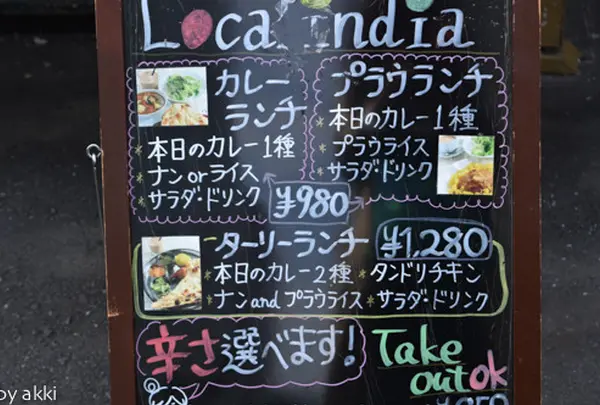 Local India
カレーランチ
*本日のカレー1種
*ナンorライス
*サラダ・ドリンク
プラウランチ
*本日のカレー1種
*プラウライス
*サラダ・ドリンク
¥980
ターリーランチ ¥1,280
*本日のカレー2種 *タンドリチキン
*ナンandプラウライス *サラダ・ドリンク
辛さ選べます!
Take
out ok
by akki